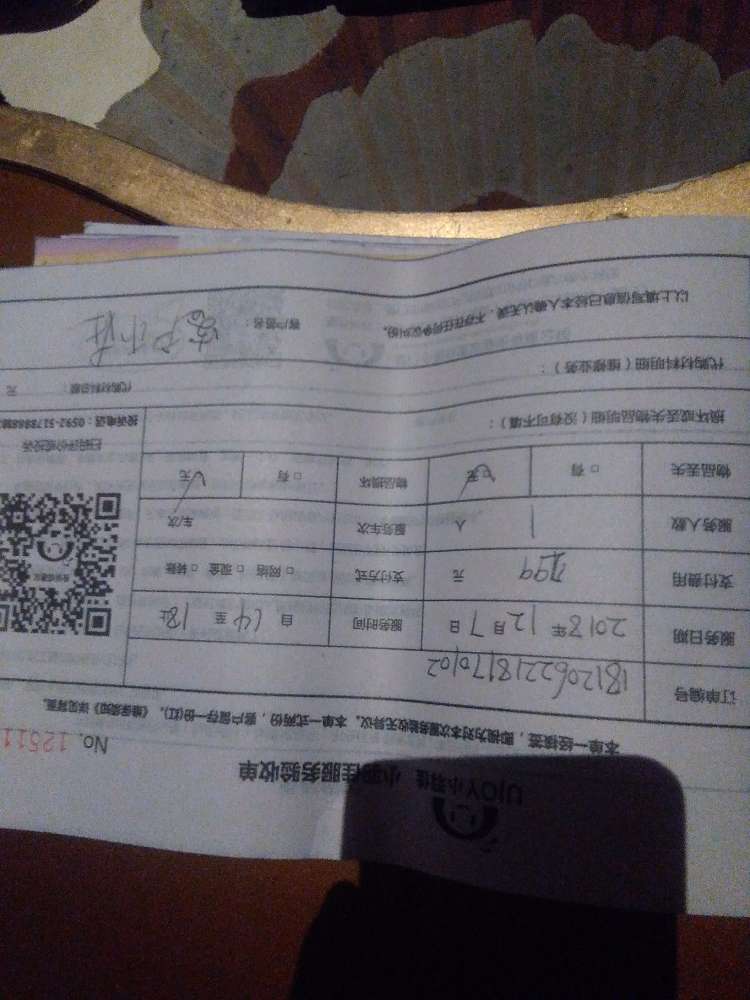 UJOY小羽佳 小羽佳服务验收单
No. 12511
本单一经核签，即视为对本次服务验收无异议。本单一式两份，客户留存一份(红)，《维保须知》详见背面。
订单编号 1812062218170102
服务日期 2018年 12月 7日 服务时间 自 14 至 18
支付费用 元 支付方式 □ 网络 □ 现金 □ 转账
服务人数 1 人 服务车次 车/次
物品丢失 □ 有 无 物品损坏 □ 有 无
扫描评价或投诉
投诉电话：0592-5178888
损坏或丢失物品明细（没有可不填）：
代购材料明细（维修业务）： 代购材料总额： 元
以上填写信息已经本人确认无误，不存在任何争议纠纷。 客户签名：